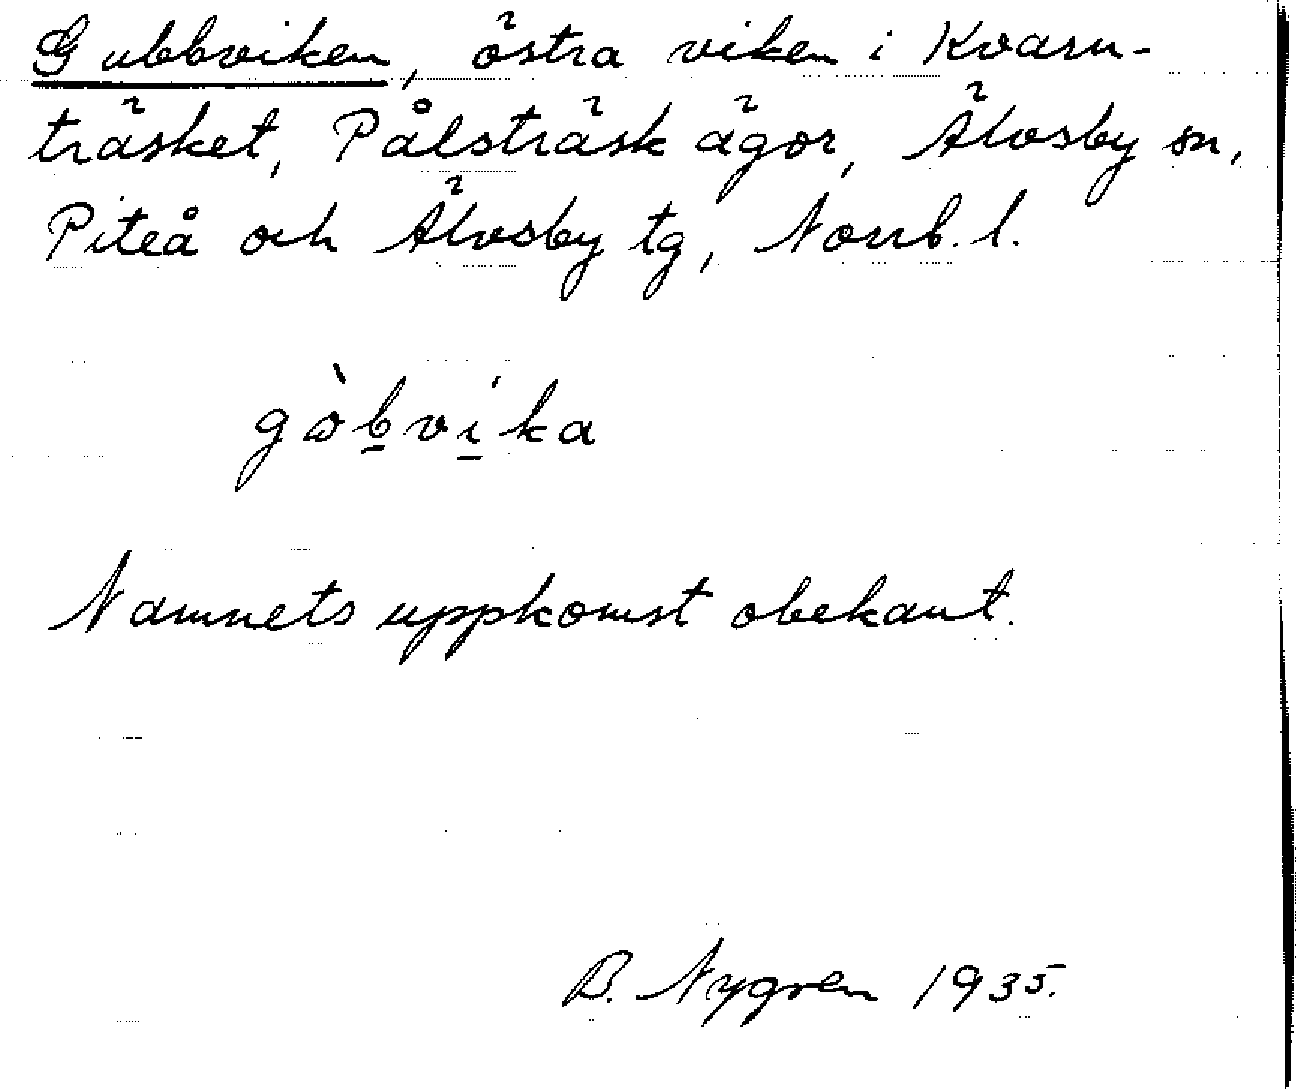 Gubbviken, östra viken i Kvarn-
träsket, Pålsträsk ägor, Älvsby sn,
Piteå och Älvsby tg, Norrb. l.
gòb̲vi̲ka
Namnets uppkomst obekant.
B. Nygren 1935.